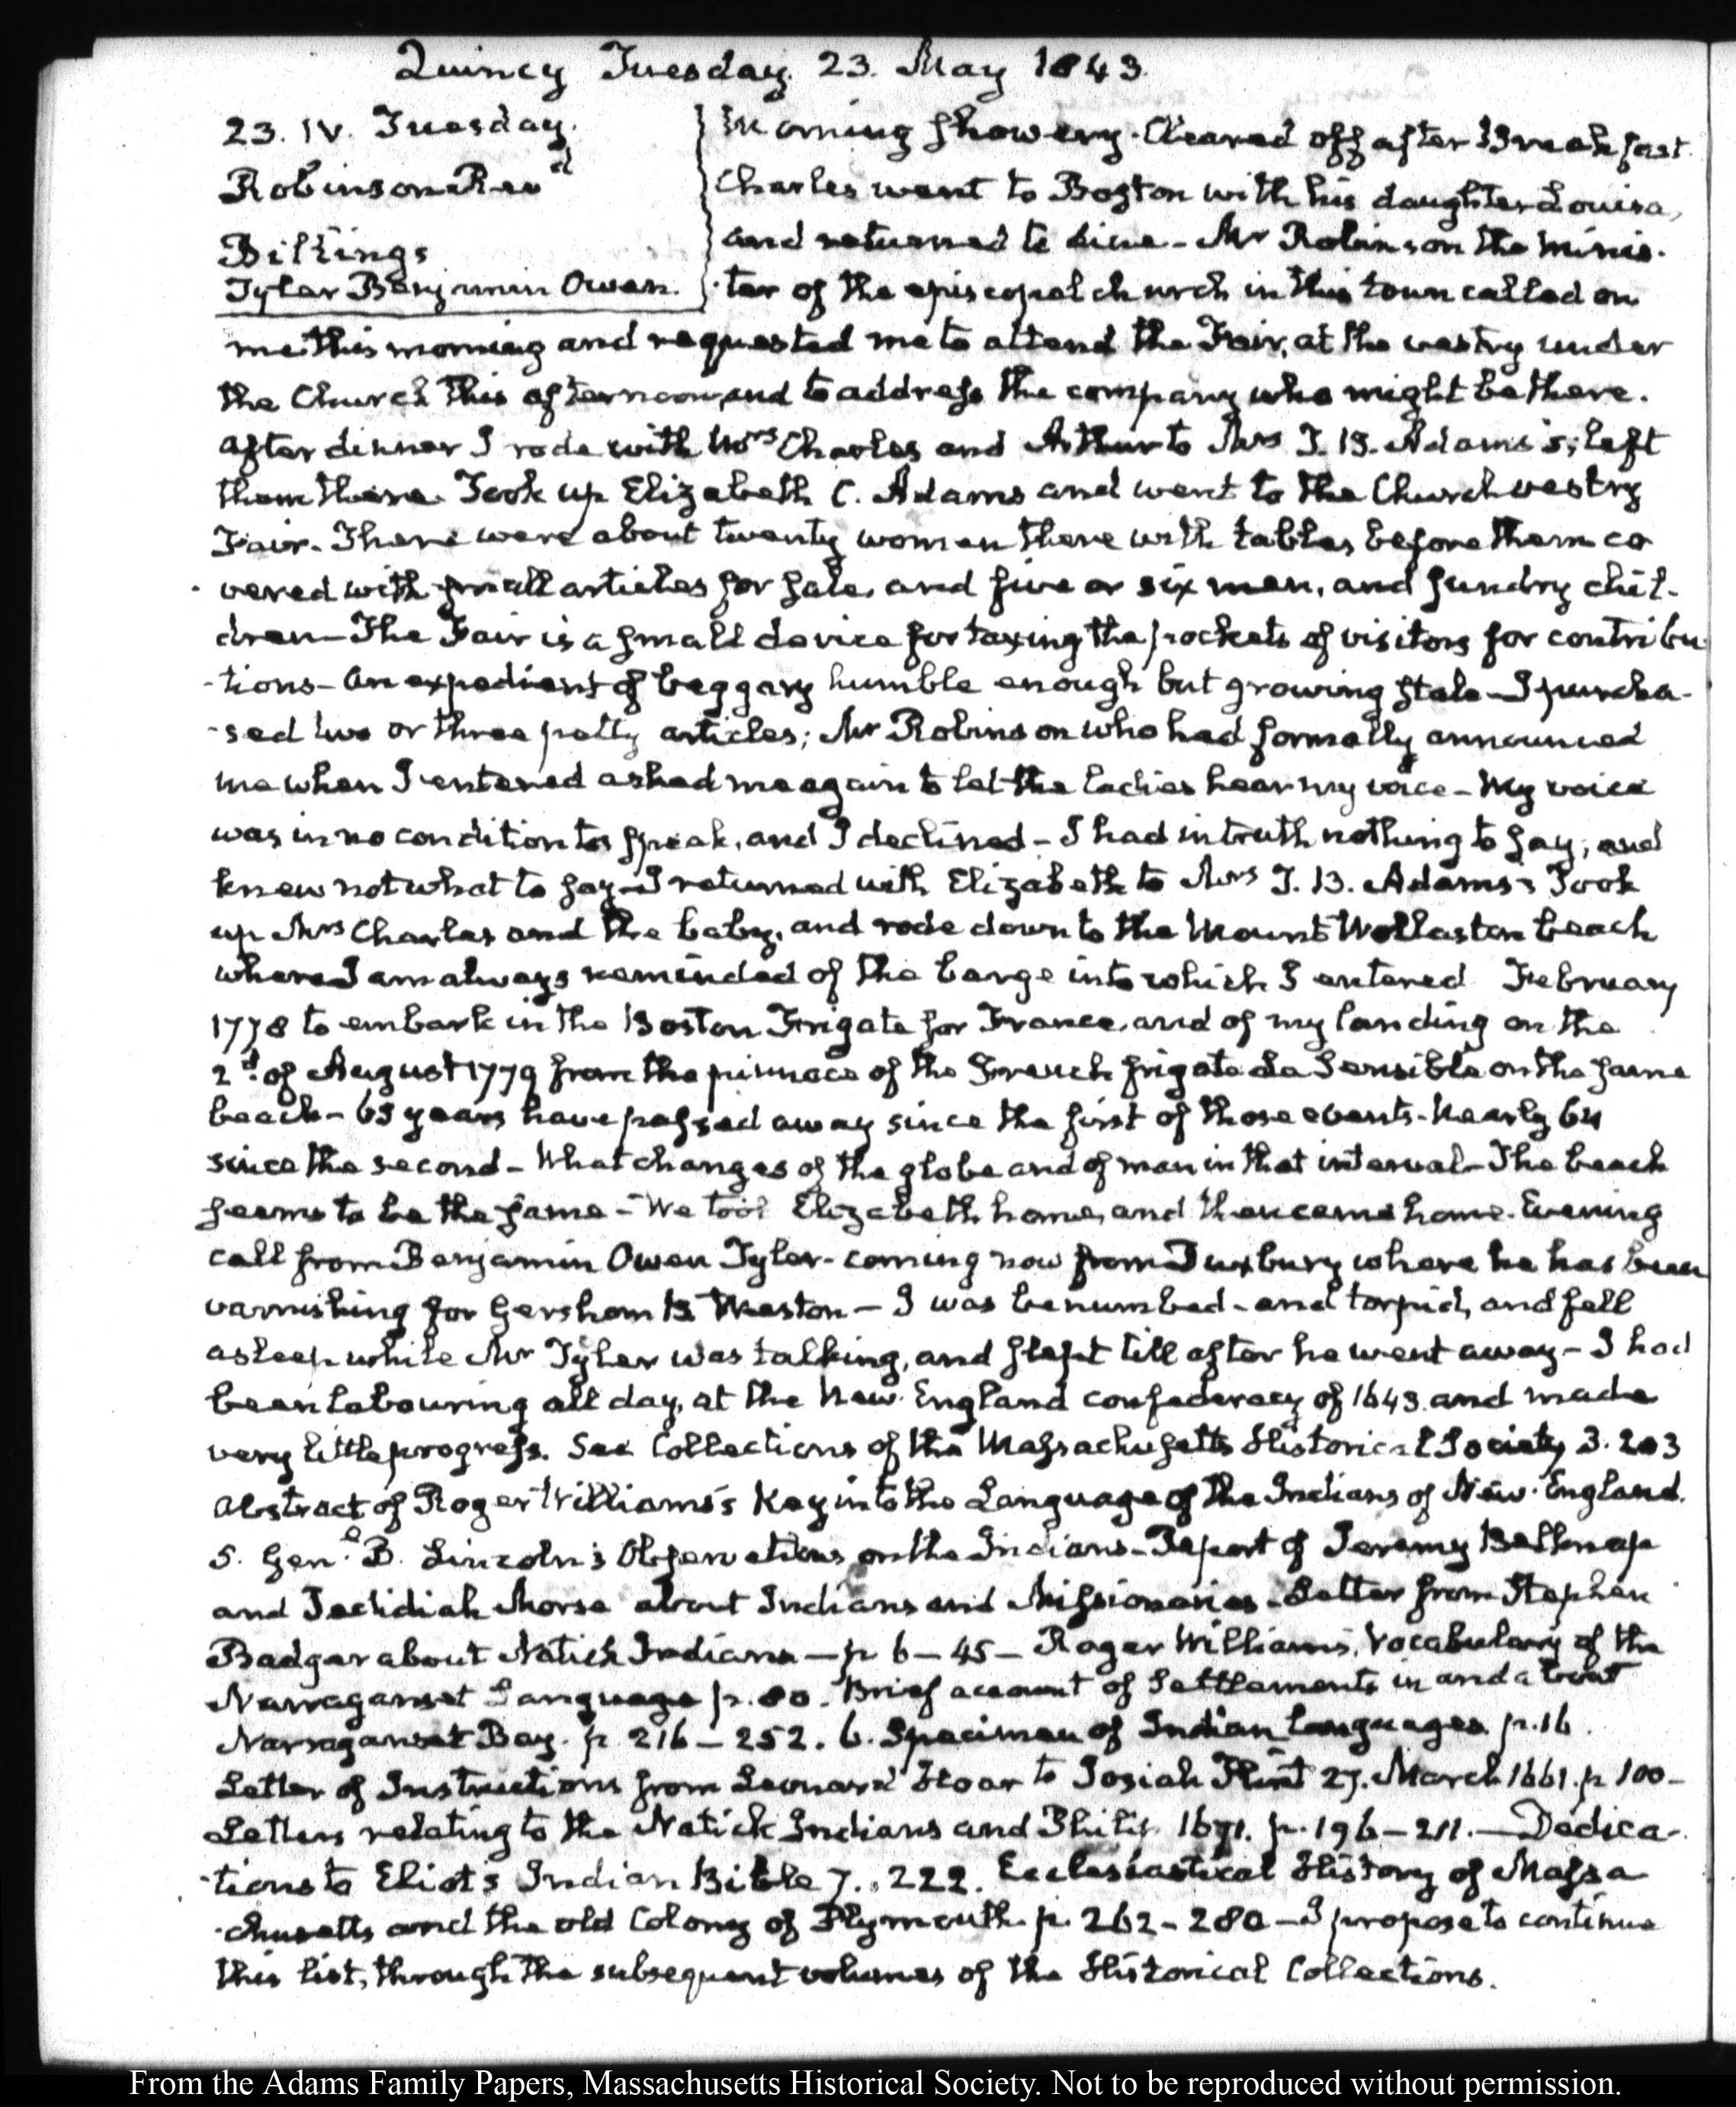 Quincy Tuesday. 23. May 1843.
23. IV. Tuesday.
Robinson Revd
Billings
Tyler Benjamin Owen.
Morning showery. Cleared off after Breakfast.
Charles went to Boston with his daughter Louisa,
and returned to dine - Mr Robinson the minis-
-ter of the episcopal church in this town called on
me this morning and requested me to attend the Fair, at the vestry under
the Church this afternoon, and to address the company who might be there.
After dinner I rode with Mrs Charles and Arthur to Mrs T. B. Adams's; left
them there. Took up Elizabeth C. Adams and went to the Church vestry
Fair. There were about twenty women there with tables before them co
vered with small articles for sale, and five or six men, and sundry chil-
dren - The Fair is a small device for taxing the pockets of visitors for contribu
-tions - An expedient of beggary humble enough but growing stale - I purcha-
-sed two or three petty articles; Mr Robinson who had formally announced
me when I entered asked me again to let the ladies hear my voice - My voice
was in no condition to speak, and I declined - I had in truth nothing to say, and
knew not what to say - I returned with Elizabeth to Mrs T. B. Adams's Took
up Mrs Charles and the baby, and rode down to the Mount Wollaston beach
where I am always reminded of the barge into which I entered February
1778 to embark in the Boston Frigate for France, and of my landing on the
2d. of August 1779 from the pinnace of the French frigate La Sensible on the same
beach - 65 years have passed away since the first of those events - Nearly 64
since the second - What changes of the globe and of man in that interval - The beach
seems to be the same - We took Elizabeth home, and then came home. Evening
call from Benjamin Owen Tyler - coming now from Duxbury where he has been
varnishing for Gershom B Weston - I was benumbed - and torpid, and fell
asleep while Mr Tyler was talking, and slept till after he went away - I had
been labouring all day, at the New England confederacy of 1643 and made
very little progress. See Collections of the Massachusetts Historical Society 3. 203
Abstract of Roger Williams's Key into the Language of the Indians of New England.
5. Genl. B. Lincoln's Observations on the Indians - Report of Jeremy Belknap
and Jedidiah Morse about Indians and Missionaries - Letter from Stephen
Badger about Natick Indians - p 6 - 45 - Roger Williams, Vocabulary of the
Narraganset Language p. 80. Brief account of Settlements in and about
Narraganset Bay. p. 216 - 252. 6. Specimen of Indian languages p. 16.
Letter of Instructions from Leonard Hoar to Josiah Flint 27. March 1661. p 100 -
Letters relating to the Natick Indians and Philip. 1671. p. 196 - 211. - Dedica-
-tions to Eliot's Indian Bible 7. 222. Ecclesiastical History of Massa
-chusetts and the old Colony of Plymouth. p. 262 - 280 - I propose to continue
this list, through the subsequent volumes of the Historical Collections.
From the Adams Family Papers, Massachusetts Historical Society. Not to be reproduced without permission.